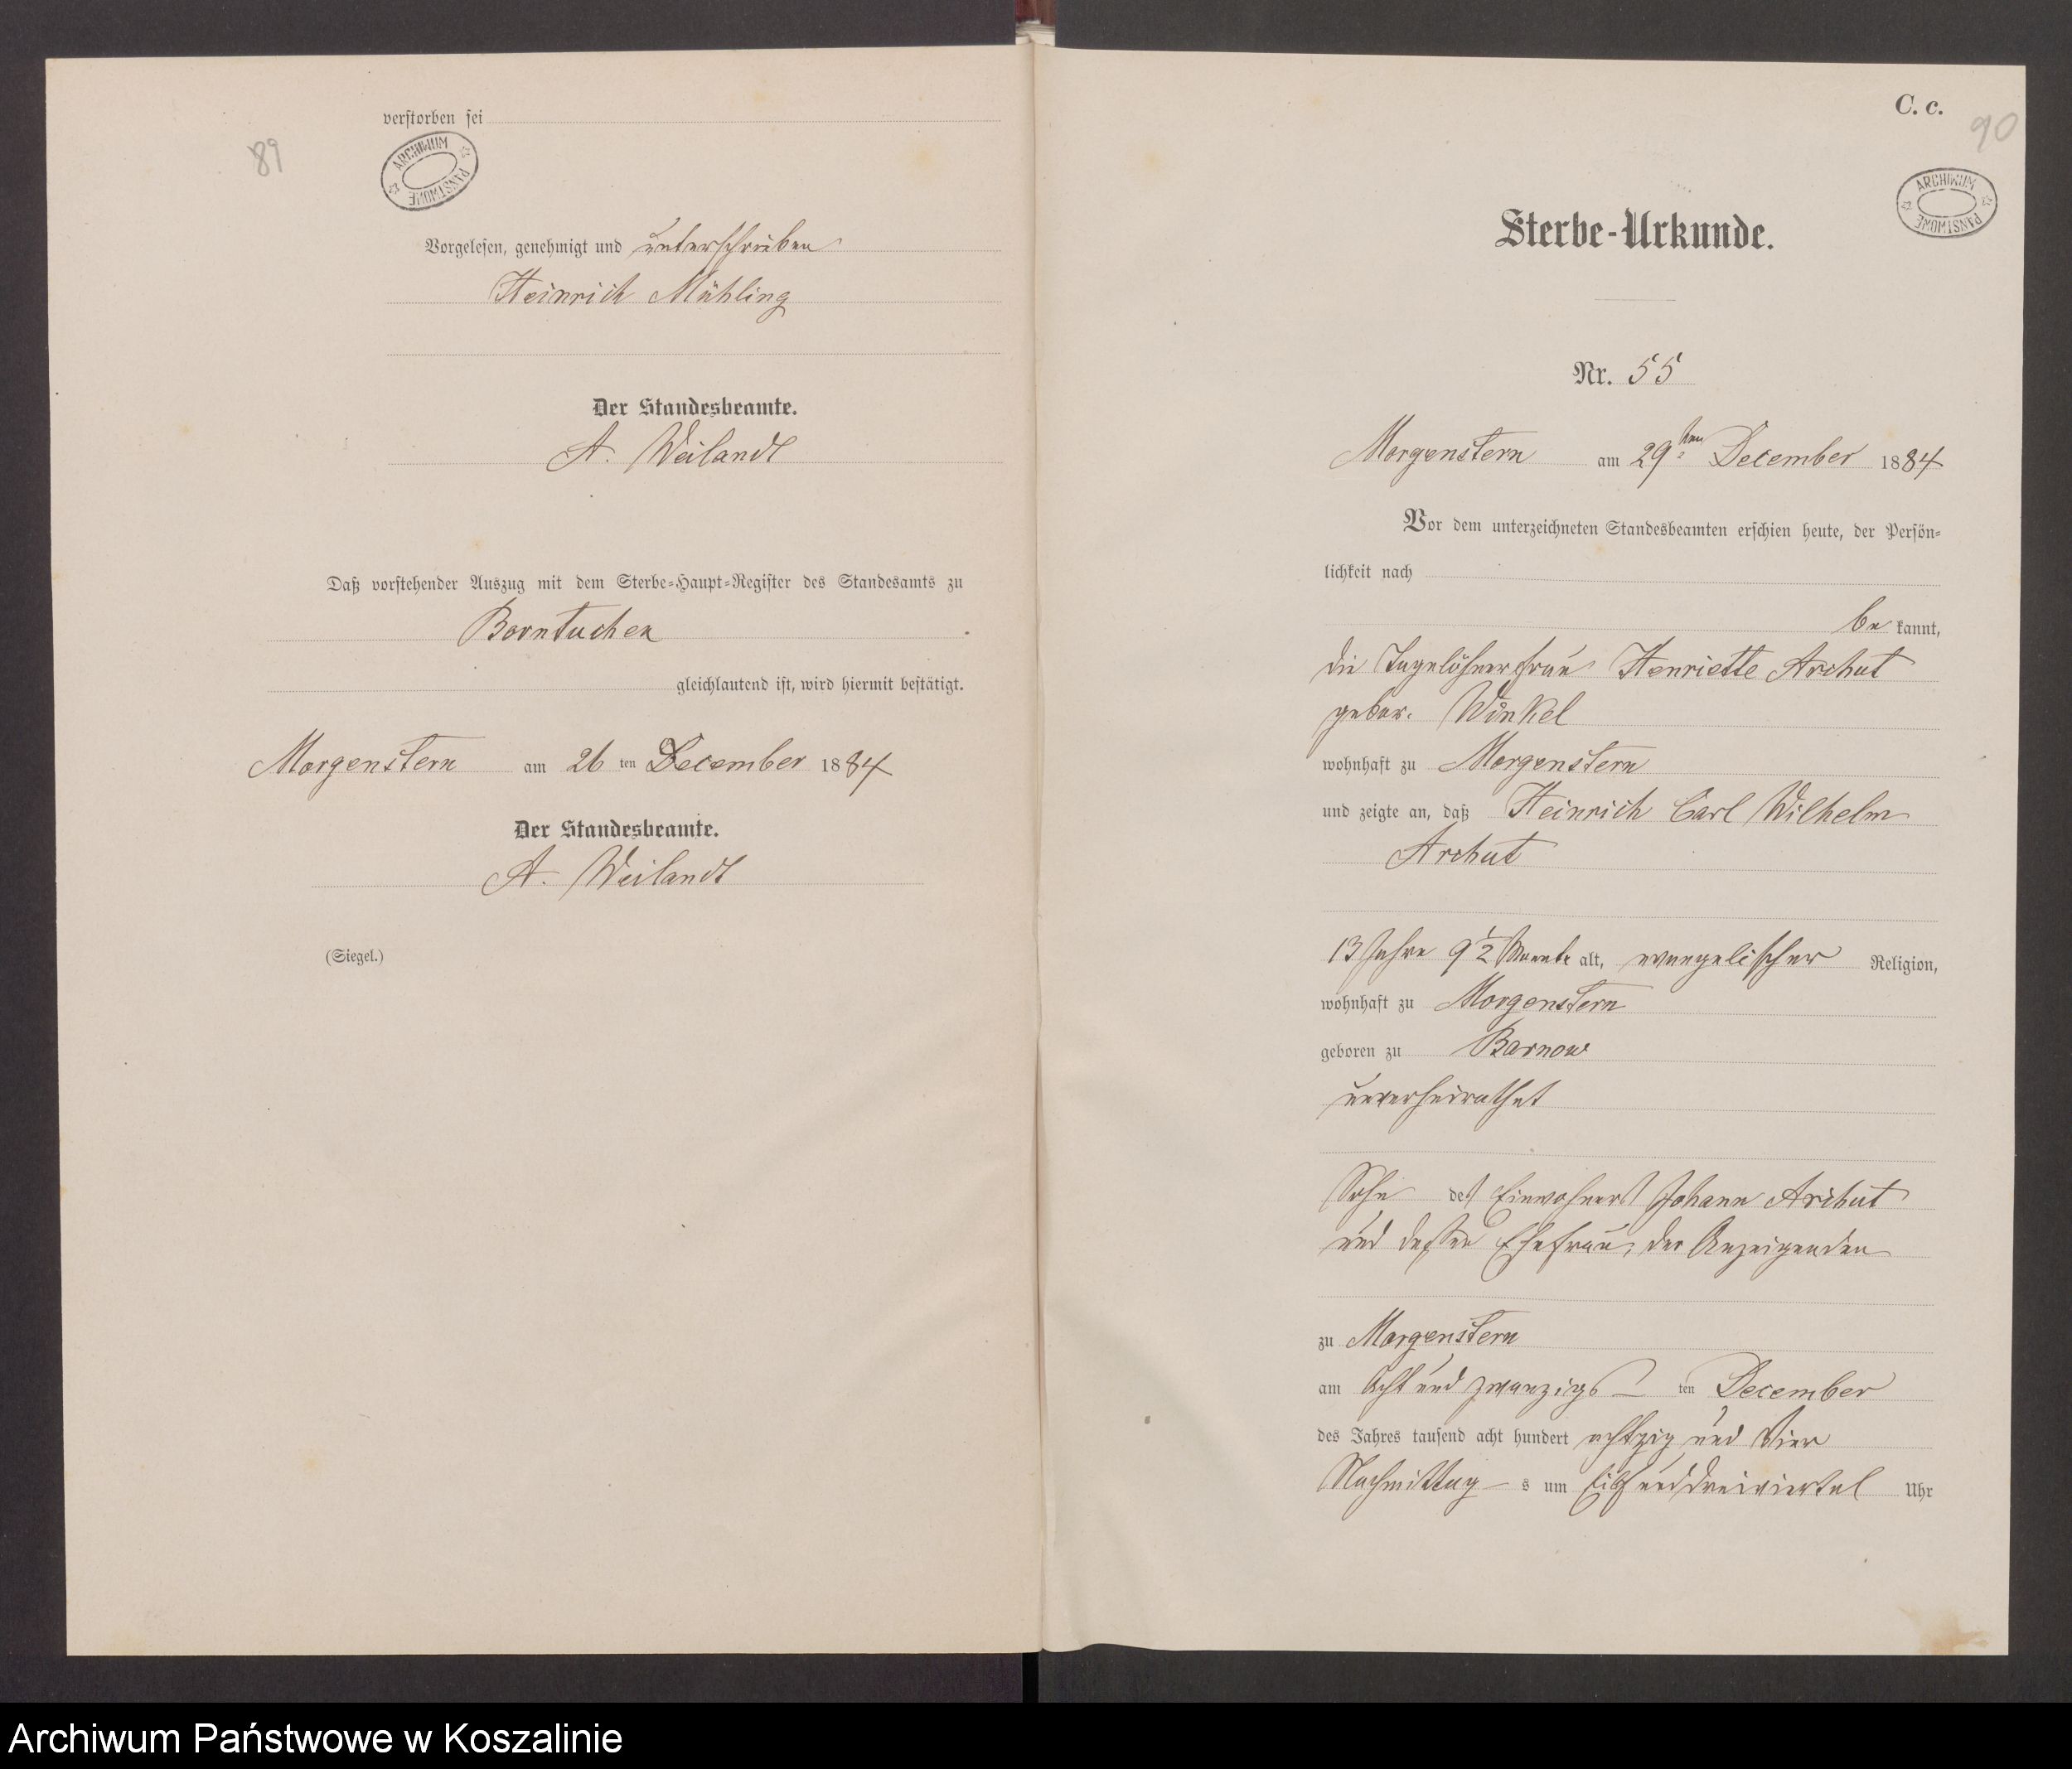 verstorben sei
89
ARCHIWUM PAŃSTWOWE
Vorgelesen, genehmigt und unterschrieben
Heinrich Mühling
Der Standesbeamte.
A. Weilandt
Daß vorstehender Auszug mit dem Sterbe-Haupt-Register des Standesamts zu
Borntuchen
gleichlautend ist, wird hiermit bestätigt.
Morgenstern am 26 ten December 1884
Der Standesbeamte.
A. Weilandt
(Siegel.)
C. c.
90
ARCHIWUM PAŃSTWOWE
Sterbe-Urkunde.
Nr. 55
Morgenstern am 29ten December 1884
Vor dem unterzeichneten Standesbeamten erschien heute, der Persön-
lichkeit nach
be kannt,
die Tagelöhnerfrau Henriette Archut
gebor. Winkel
wohnhaft zu Morgenstern
und zeigte an, daß Heinrich Carl Wilhelm
Archut
13 Jahre 9 1/2 Monate alt, evangelischer Religion,
wohnhaft zu Morgenstern
geboren zu Barnow
unverheirathet
Sohn des Einwohners Johann Archut
und dessen Ehefrau, der Anzeigenden
zu Morgenstern
am Acht und zwanzigs ten December
des Jahres tausend acht hundert achtzig und Vier
Nachmittag s um Eilf und dreiviertel Uhr
Archiwum Państwowe w Koszalinie